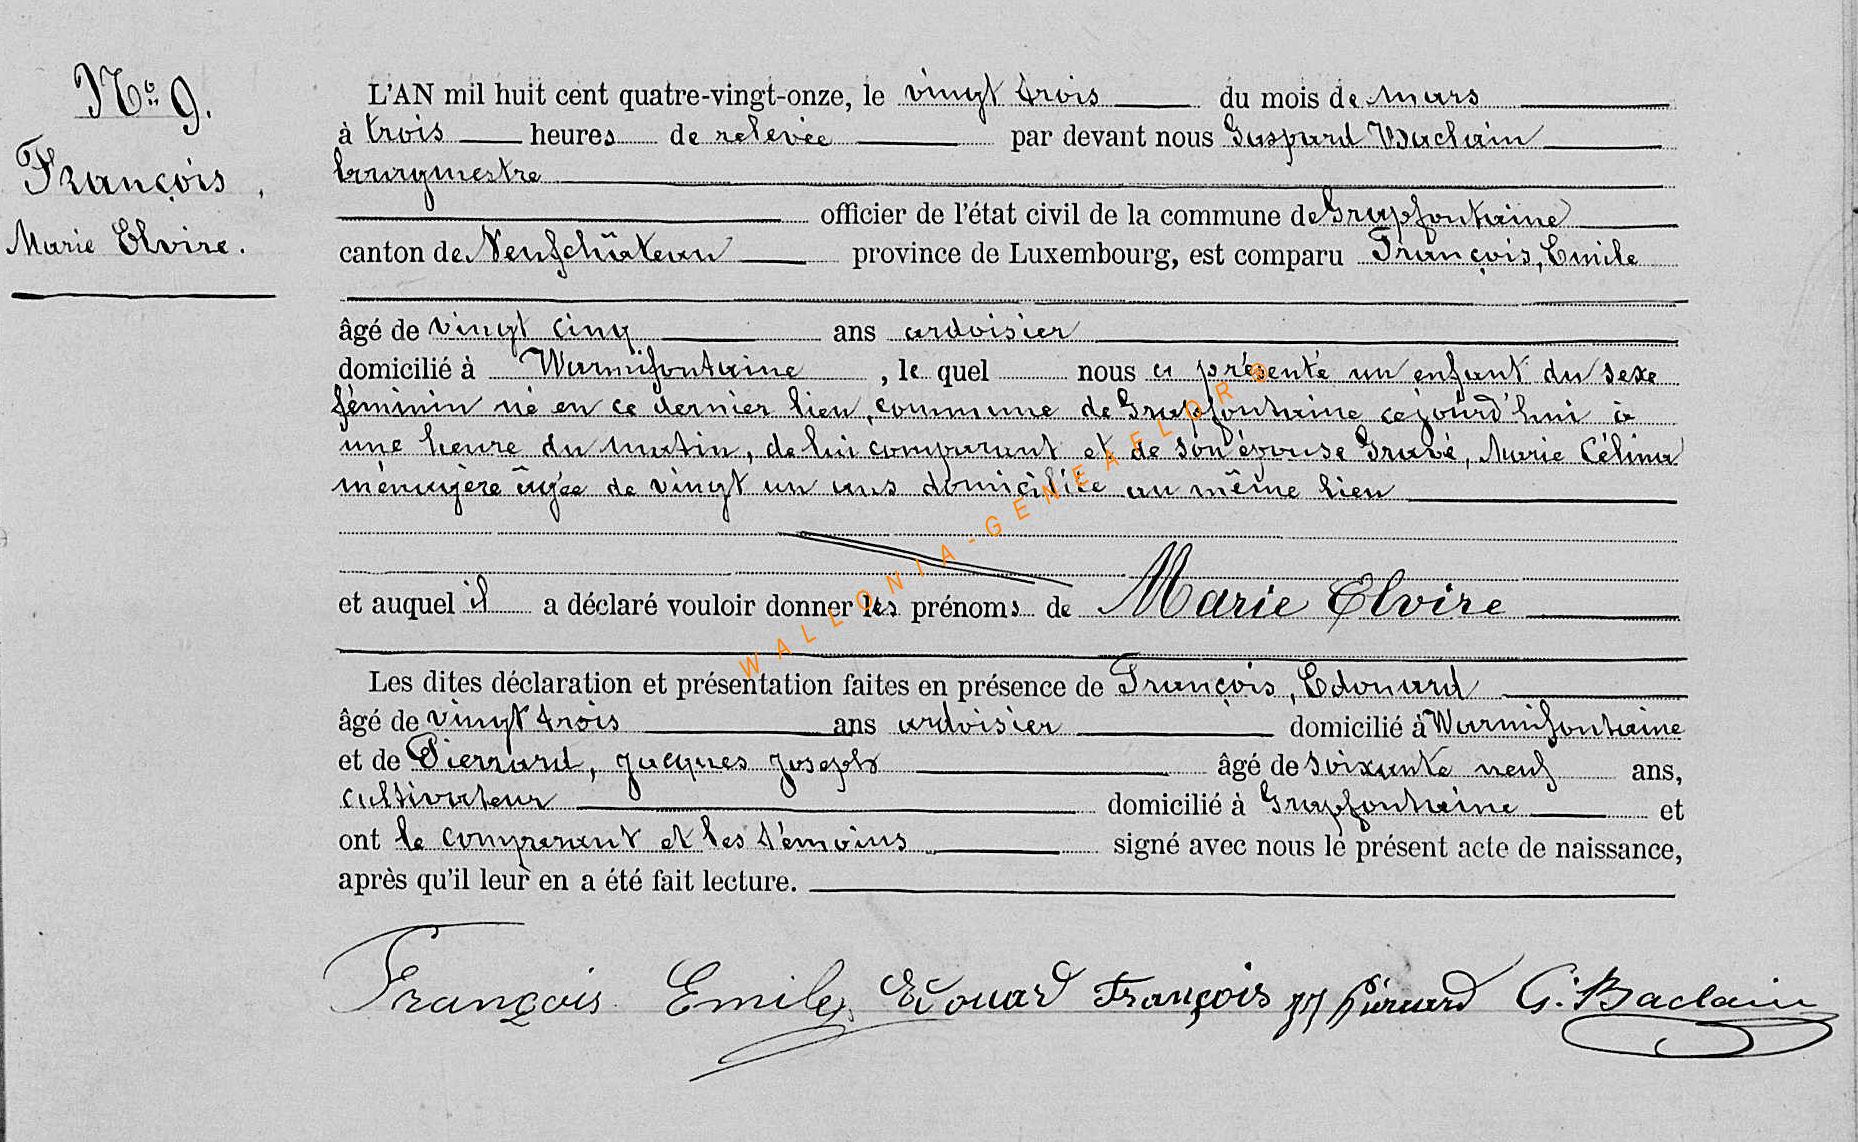 N° 9.
François,
Marie Elvire.
L'AN mil huit cent quatre-vingt-onze, le vingt trois du mois de mars
à trois heures de relevée par devant nous Gaspard Baclain
bourgmestre
officier de l'état civil de la commune de Grapfontaine
canton de Neufchâteau province de Luxembourg, est comparu François, Emile
âgé de vingt cinq ans ardoisier
domicilié à Warmifontaine, le quel nous a présenté un enfant du sexe
féminin né en ce dernier lieu, commune de Grapfontaine cejourd'hui à
une heure du matin, de lui comparant et de son épouse Gravé, Marie Célina
ménagère âgée de vingt un ans domiciliée au même lieu
et auquel il a déclaré vouloir donner les prénoms de Marie Elvire
Les dites déclaration et présentation faites en présence de François, Edouard
âgé de vingt trois ans ardoisier domicilié à Warmifontaine
et de Pierrard, Jacques Joseph âgé de soixante neuf ans,
cultivateur domicilié à Grapfontaine et
ont le comparant et les témoins signé avec nous le présent acte de naissance,
après qu'il leur en a été fait lecture.
François Emile Edouard François JJ Piérard G. Baclain
WALLONIA-GENEAFLORE